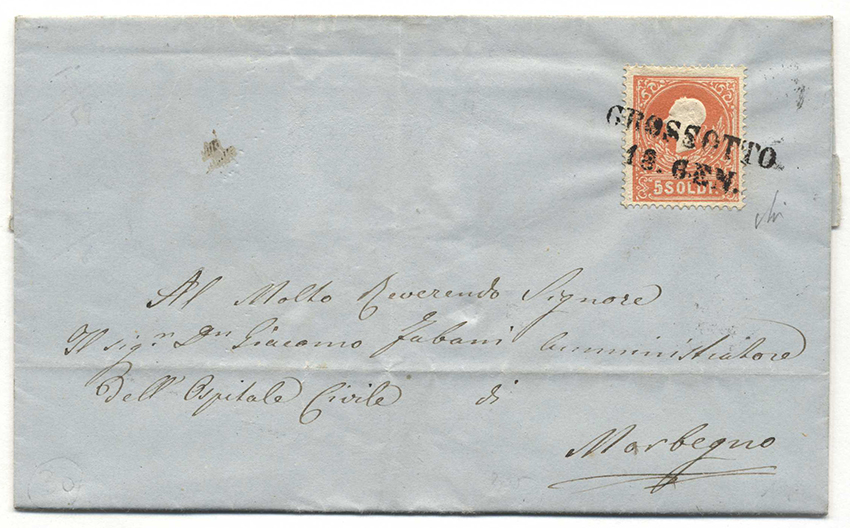 GROSSOTTO
18. GEN.
5 SOLDI
Al Molto Reverendo Signore
Il sigr. Dn Giacomo Fabani Amministratore
dell'Ospitale Civile di
Morbegno